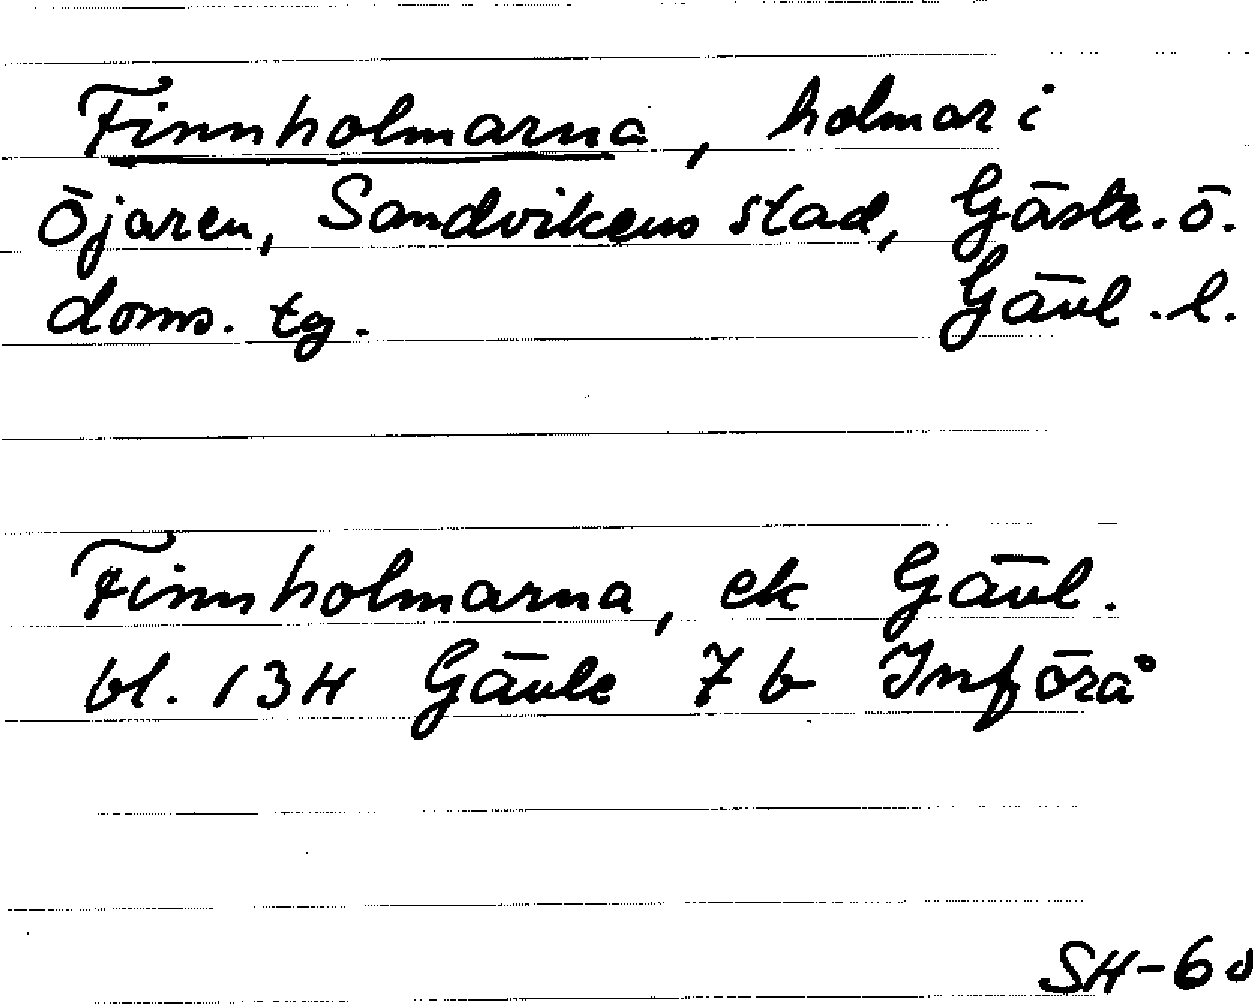 Finnholmarna, holmar i
Öjaren, Sandvikens stad, Gästr. ö.
doms. tg. Gävl. l.
Finnholmarna, ek Gävl.
bl. 13H Gävle 7b Införå
SH-60